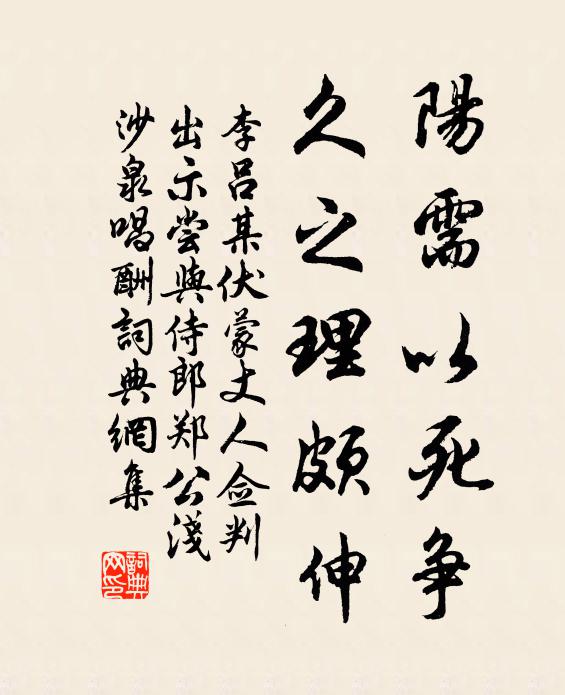 陽需以死争
久之理頗伸
李呂某伏蒙丈人佥判
出示尝與侍郎郑公淺
沙泉唱酬詞典網集
詞典
网印